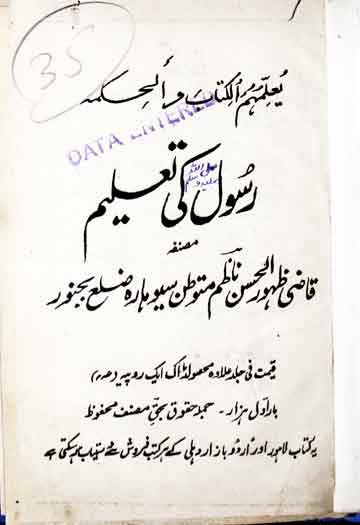 35
يُعلِّمهُم الكتابَ و الحكمة
DATA ENTERED
رسُول کی تعلیم
صلی اللہ علیہ وسلم
مصنفہ
قاضی ظہور الحسن ناظم متوطن سیوہارہ ضلع بجنور
قیمت فی جلد علاوہ محصولڈاک ایک روپیہ
بار اول ہزار - جملہ حقوق بحق مصنف محفوظ
یہ کتاب لاہور اور اُردو بازار دہلی کے ہر کتب فروش سے دستیاب ہو سکتی ہے